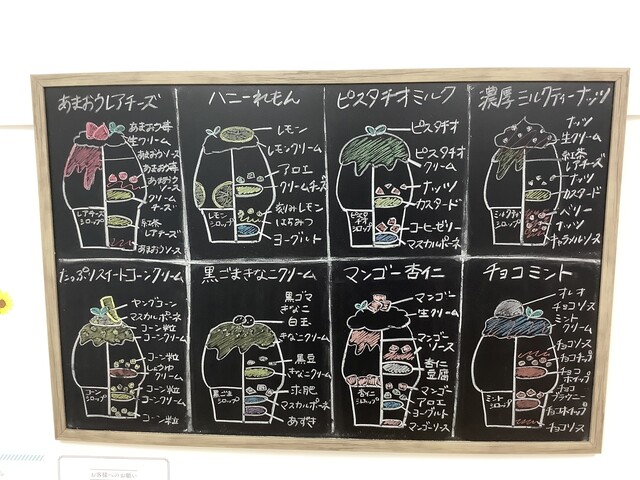 あまおうレアチーズ
あまおう苺
生クリーム
あまおうソース
あまおう苺
あまおう
ソース
クリーム
チーズ
紅茶
レアチーズ
あまおうソース
レアチーズ
シロップ
ハニーれもん
レモン
レモンクリーム
アロエ
クリームチーズ
刻みレモン
はちみつ
ヨーグルト
レモン
シロップ
ピスタチオミルク
ピスタチオ
ピスタチオ
クリーム
ナッツ
カスタード
コーヒーゼリー
マスカルポーネ
ピスタ
チオ
シロップ
濃厚ミルクティーナッツ
ナッツ
生クリーム
紅茶
レアチーズ
ナッツ
カスタード
ベリー
ナッツ
キャラメルソース
ミルクティー
シロップ
たっぷりスイートコーンクリーム
ヤングコーン
マスカルポーネ
コーン粒
コーンクリーム
コーン粒
しょうゆ
クリーム
コーン粒
コーンクリーム
コーン粒
コーン
シロップ
黒ごまきなこクリーム
黒ゴマ
きなこ
白玉
きなこクリーム
黒豆
きなこクリーム
求肥
マスカルポーネ
あずき
黒ごま
シロップ
マンゴー杏仁
マンゴー
生クリーム
マンゴー
ソース
杏仁
豆腐
マンゴー
アロエ
ヨーグルト
マンゴーソース
杏仁
シロップ
チョコミント
オレオ
チョコソース
ミント
クリーム
チョコソース
チョコチップ
チョコ
ホイップ
チョコ
ブラウニー
チョコホイップ
チョコソース
ミント
シロップ
お客様へのお願い